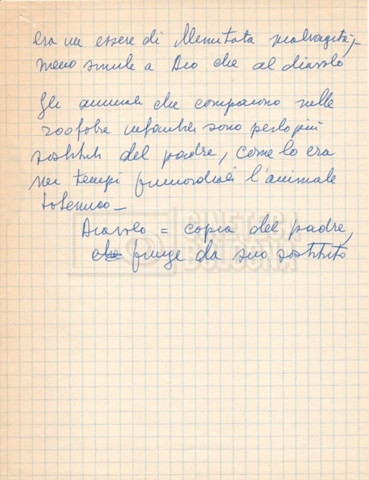 era un essere di illimitata malvagità,
meno simile a Dio che al diavolo
Gli animali che compaiono nelle
zoofobie infantili sono perlopiù
sostituti del padre, come lo era
nei tempi primordiali l'animale
totemico_
Diavolo = copia del padre,
che funge da suo sostituto
CINETECA
BOLOGNA